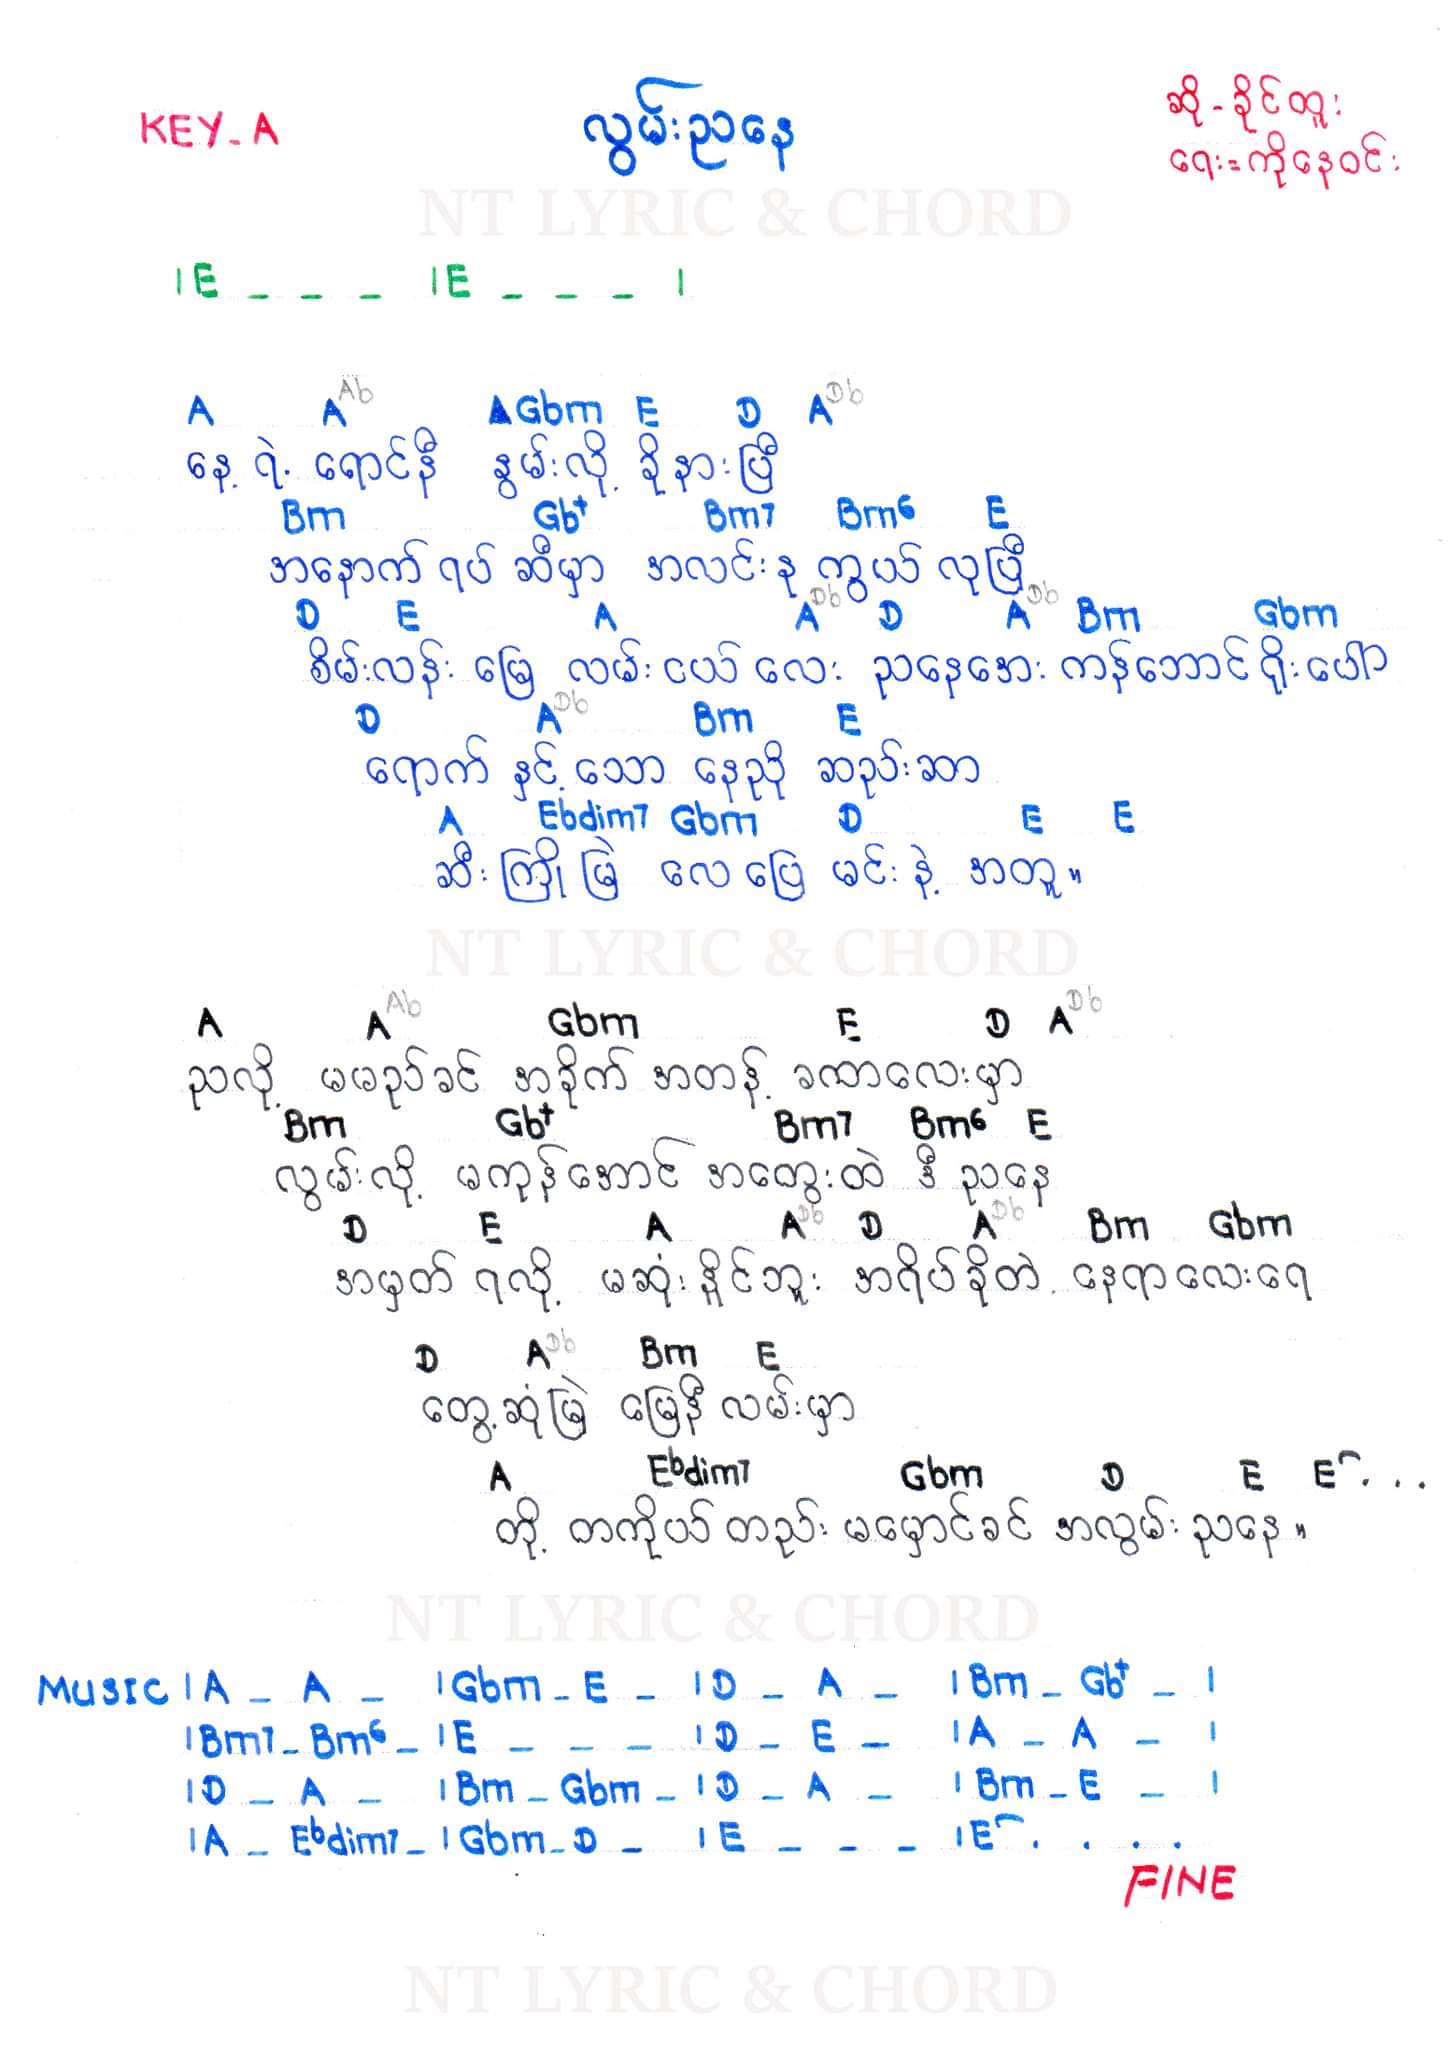 KEY - A
လွမ်းညနေ
ဆို - ခိုင်ထူး
ရေး = ကိုနေဝင်း
NT LYRIC & CHORD
| E _ _ _ | E _ _ _ |
A A Ab A Gbm E D A Db
နေ့ ရဲ့ ရောင်နီ နွမ်းလို့ ခိုနားပြီ
Bm Gb+ Bm7 Bm6 E
အနောက် ရပ် ဆီမှာ အလင်းနု ကွယ် လုပြီ
D E A A Db D A Db Bm Gbm
စိမ်းလန်း မြေ လမ်း ငယ် လေး ညနေအေး ကန်ဘောင် ရိုးပေါ်
D A Db Bm E
ရောက် နှင့် သော နေညို ဆည်းဆာ
A Ebdim7 Gbm D E E
ဆီး ကြို မြဲ လေ ပြေ မင်း နဲ့ အတူ။
NT LYRIC & CHORD
A A Ab Gbm E D A Db
ညလို့ မမည်ခင် အခိုက် အတန့် ခဏလေးမှာ
Bm Gb+ Bm7 Bm6 E
လွမ်းလို့ မကုန်အောင် အတွေးထဲ ဒီ ညနေ
D E A A Db D A Db Bm Gbm
အမှတ် ရလို့ မဆုံး နိုင်ဘူး အရိပ်ခိုတဲ့ နေရာလေးရေ
D A Db Bm E
တွေ့ဆုံမြဲ မြေနီ လမ်းမှာ
A Ebdim7 Gbm D E E . . .
တို့ တကိုယ် တည်း မမှောင်ခင် အလွမ်း ညနေ။
NT LYRIC & CHORD
MUSIC | A _ A _ | Gbm _ E _ | D _ A _ | Bm _ Gb+ _ |
| Bm7 _ Bm6 _ | E _ _ _ | D _ E _ | A _ A _ |
| D _ A _ | Bm _ Gbm _ | D _ A _ | Bm _ E _ |
| A _ Ebdim7 _ | Gbm _ D _ | E _ _ _ | E . . . .
FINE
NT LYRIC & CHORD